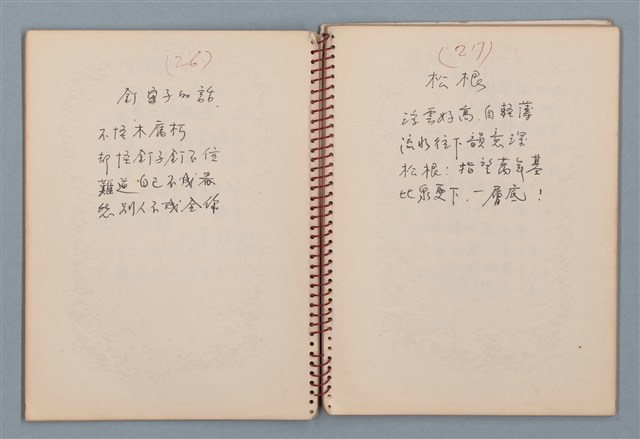 (26)
釘字子的話
不怪木腐朽
却怪釘子釘不住
難道自己不成器
怨別人不成全你
(27)
松根
浮雲好高,自輕薄
流水往下韻意深
松根:指望萬年基
比泉更下,一層底!